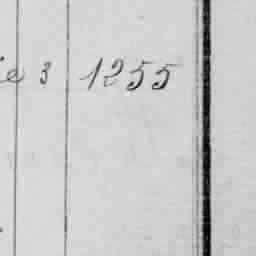 ie 3 1255